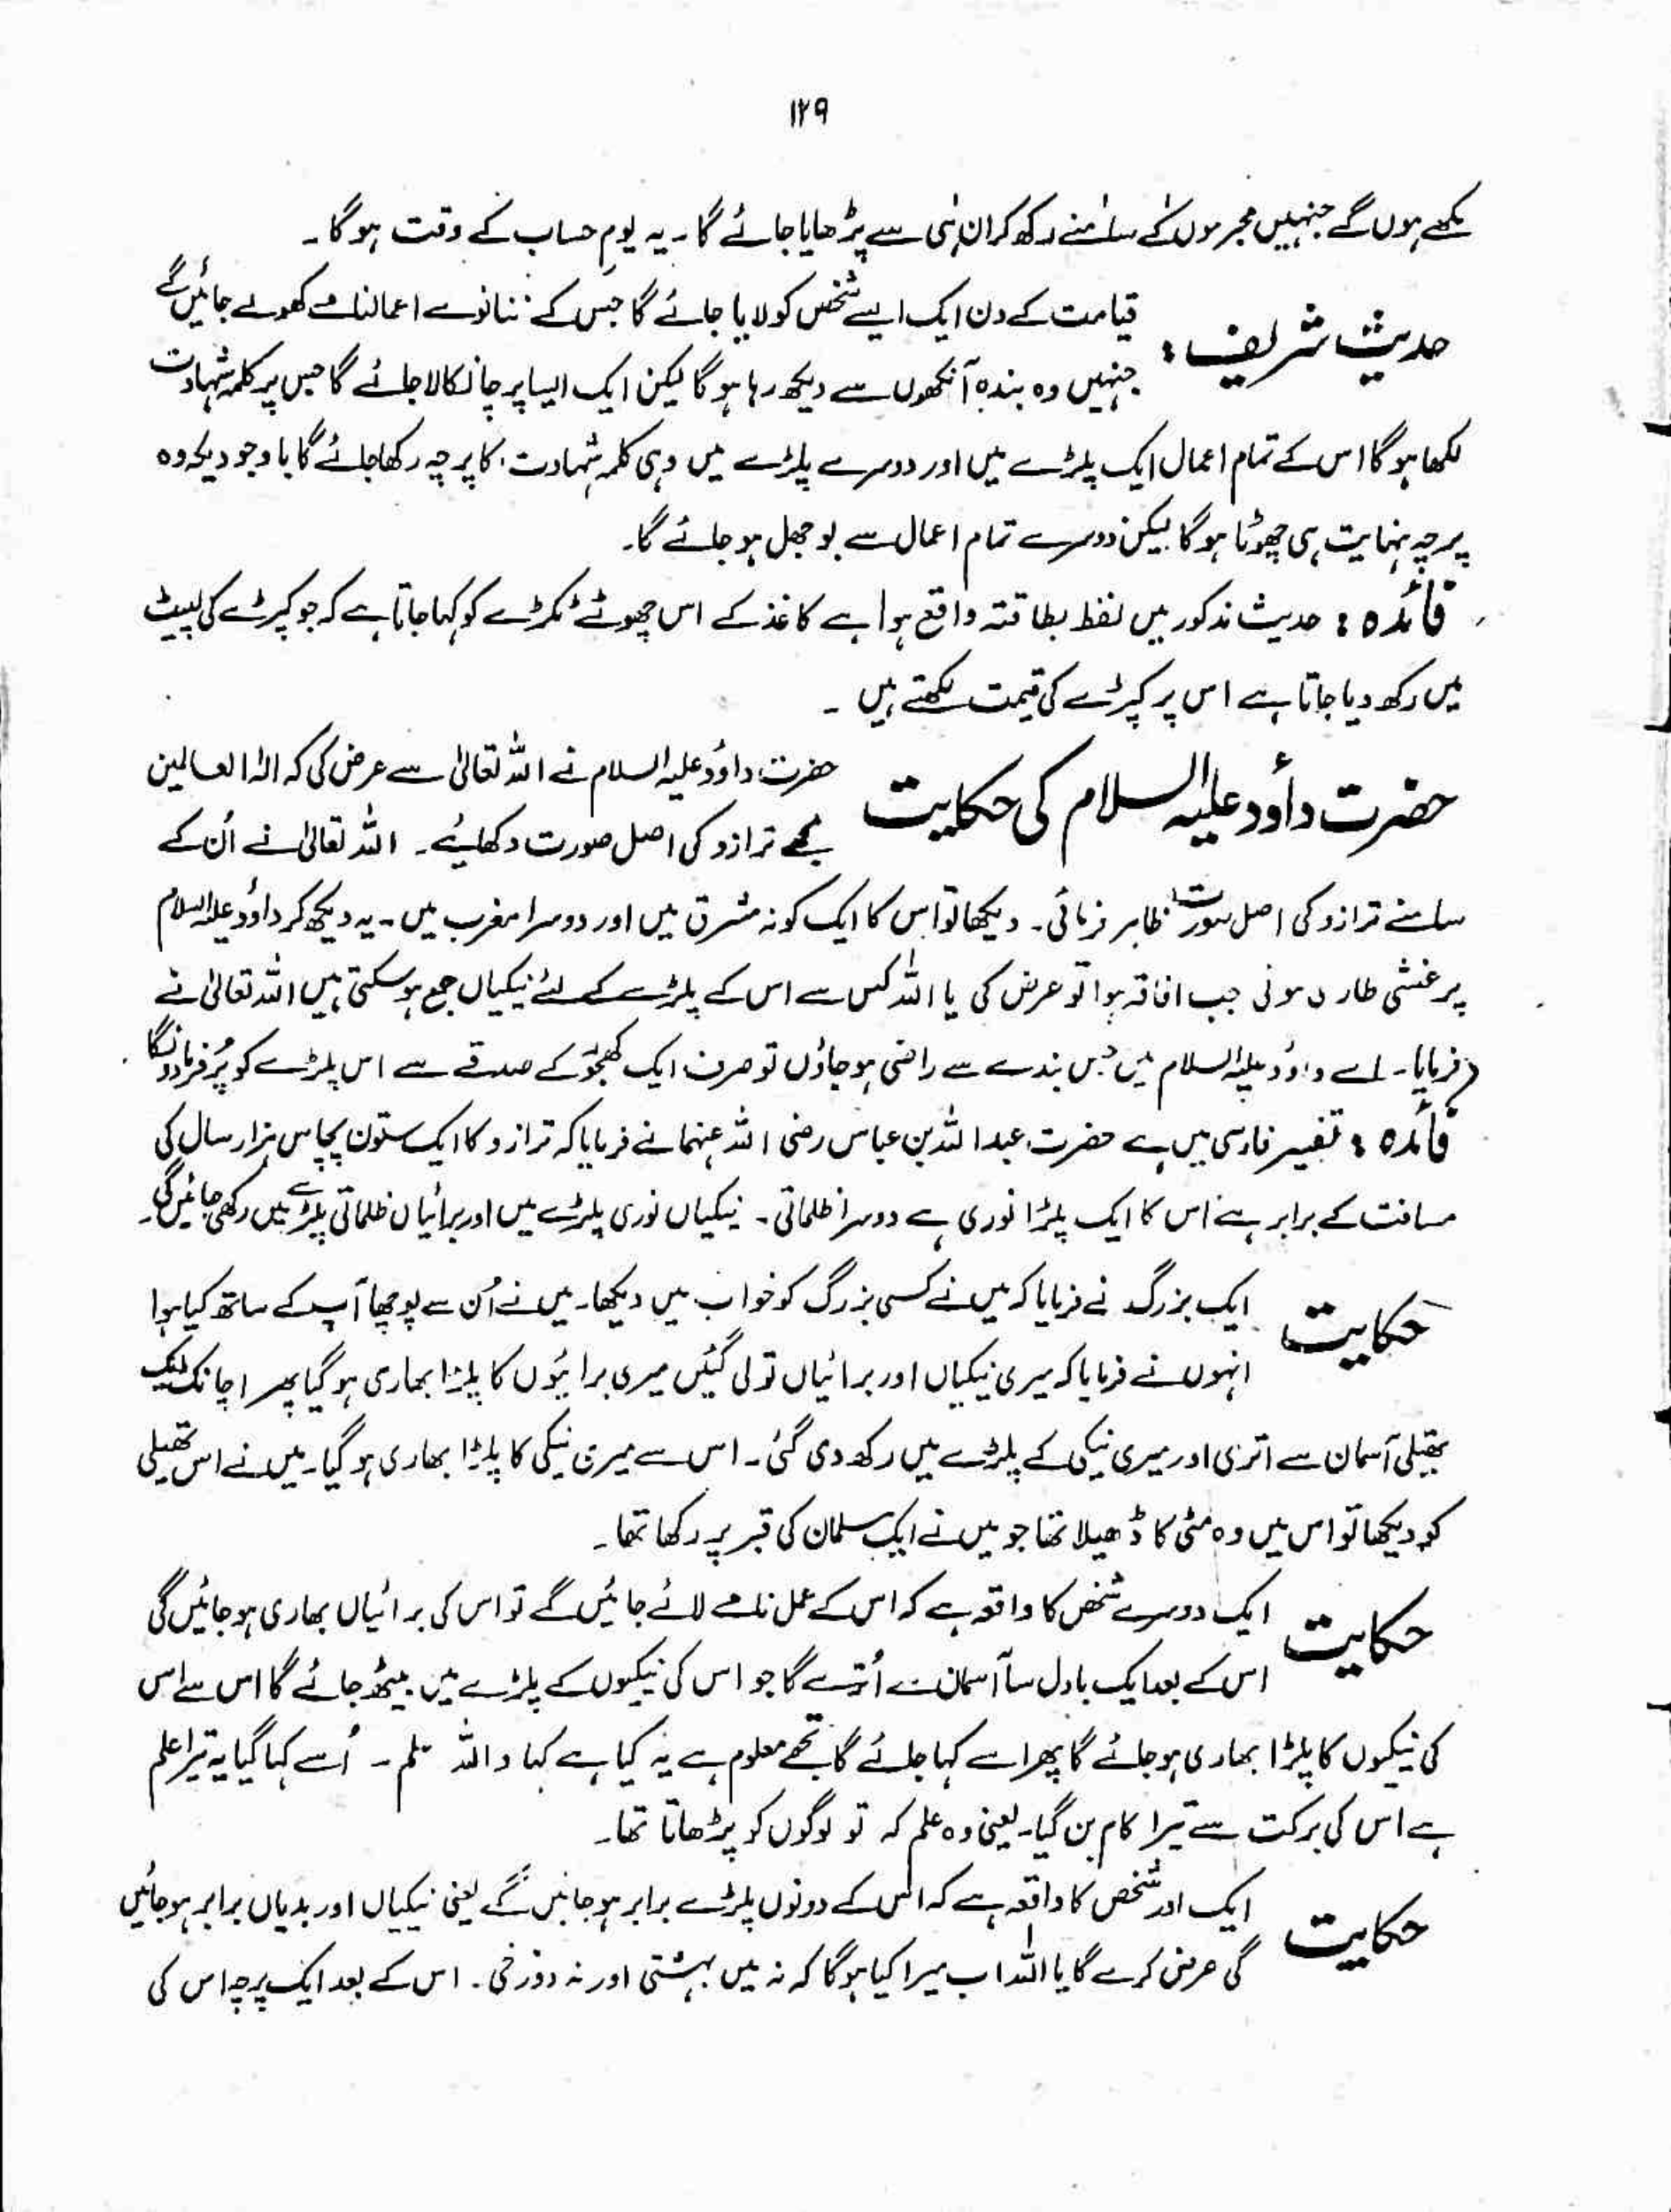 ۱۲۹
لکھے ہوں گے جنہیں مجرموں کے سامنے رکھ کر ان ہی سے پڑھایا جائے گا۔ یہ یومِ حساب کے وقت ہوگا۔
حدیث شریف : قیامت کے دن ایک ایسے شخص کو لایا جائے گا جس کے ننانوے اعمالنامے کھولے جائیں گے
جنہیں وہ بندہ آنکھوں سے دیکھ رہا ہوگا لیکن ایک ایسا پرچا نکالا جائے گا جس پر کلمہ شہادت
لکھا ہوگا اس کے تمام اعمال ایک پلڑے میں اور دوسرے پلڑے میں وہی کلمہ شہادت کا پرچہ رکھا جائے گا باوجودیکہ وہ
پرچہ نہایت ہی چھوٹا ہوگا لیکن دوسرے تمام اعمال سے بوجھل ہو جائے گا۔
فائدہ : حدیث مذکور میں لفظ بطاقتہ واقع ہوا ہے کاغذ کے اس چھوٹے ٹکڑے کو کہا جاتا ہے کہ جو کپڑے کی لپیٹ
میں رکھ دیا جاتا ہے اس پر کپڑے کی قیمت لکھتے ہیں ۔
حضرت داؤد علیہ السلام کی حکایت حضرت داؤد علیہ السلام نے اللہ تعالیٰ سے عرض کی کہ الہٰ العالمین
مجھے ترازو کی اصل صورت دکھائیے۔ اللہ تعالیٰ نے اُن کے
سامنے ترازو کی اصل صورت ظاہر فرمائی۔ دیکھا تو اس کا ایک کونہ مشرق میں اور دوسرا مغرب میں۔ یہ دیکھ کر داؤد علیہ السلام
پر غشی طاری ہوئی جب افاقہ ہوا تو عرض کی یا اللہ کس سے اس کے پلڑے کے لئے نیکیاں جمع ہو سکتی ہیں اللہ تعالیٰ نے
فرمایا۔ اے داؤد علیہ السلام میں جس بندے سے راضی ہو جاؤں تو صرف ایک کھجور کے صدقے سے اس پلڑے کو پُر فرما دونگا
فائدہ : تفسیر فارسی میں ہے حضرت عبداللہ بن عباس رضی اللہ عنہما نے فرمایا کہ ترازو کا ایک ستون پچاس ہزار سال کی
مسافت کے برابر ہے اس کا ایک پلڑا نوری ہے دوسرا ظلماتی۔ نیکیاں نوری پلڑے میں اور برائیاں ظلماتی پلڑے میں رکھی جائیں گی۔
حکایت ایک بزرگ نے فرمایا کہ میں نے کسی بزرگ کو خواب میں دیکھا۔ میں نے اُن سے پوچھا آپ کے ساتھ کیا ہوا
انہوں نے فرمایا کہ میری نیکیاں اور برائیاں تولی گئیں میری برائیوں کا پلڑا بھاری ہو گیا پھر اچانک ایک
تھیلی آسمان سے اتری اور میری نیکی کے پلڑے میں رکھ دی گئی۔ اس سے میری نیکی کا پلڑا بھاری ہو گیا۔ میں نے اس تھیلی
کو دیکھا تو اس میں وہ مٹی کا ڈھیلا تھا جو میں نے ایک مسلمان کی قبر پر رکھا تھا۔
حکایت ایک دوسرے شخص کا واقعہ ہے کہ اس کے عمل نامے لائے جائیں گے تو اس کی برائیاں بھاری ہو جائیں گی
اس کے بعد ایک بادل سا آسمان سے اُترے گا جو اس کی نیکیوں کے پلڑے میں بیٹھ جائے گا اس سے اس
کی نیکیوں کا پلڑا بھاری ہو جائے گا پھر اسے کہا جائے گا تجھے معلوم ہے یہ کیا ہے کہا واللہ اعلم۔ اُسے کہا گیا یہ تیرا علم
ہے اس کی برکت سے تیرا کام بن گیا۔ یعنی وہ علم کہ تو لوگوں کو پڑھاتا تھا۔
حکایت ایک اور شخص کا واقعہ ہے کہ اس کے دونوں پلڑے برابر ہو جائیں گے یعنی نیکیاں اور بدیاں برابر ہو جائیں
گی عرض کرے گا یا اللہ اب میرا کیا ہوگا کہ نہ میں بہشتی اور نہ دوزخی۔ اس کے بعد ایک پرچہ اس کی